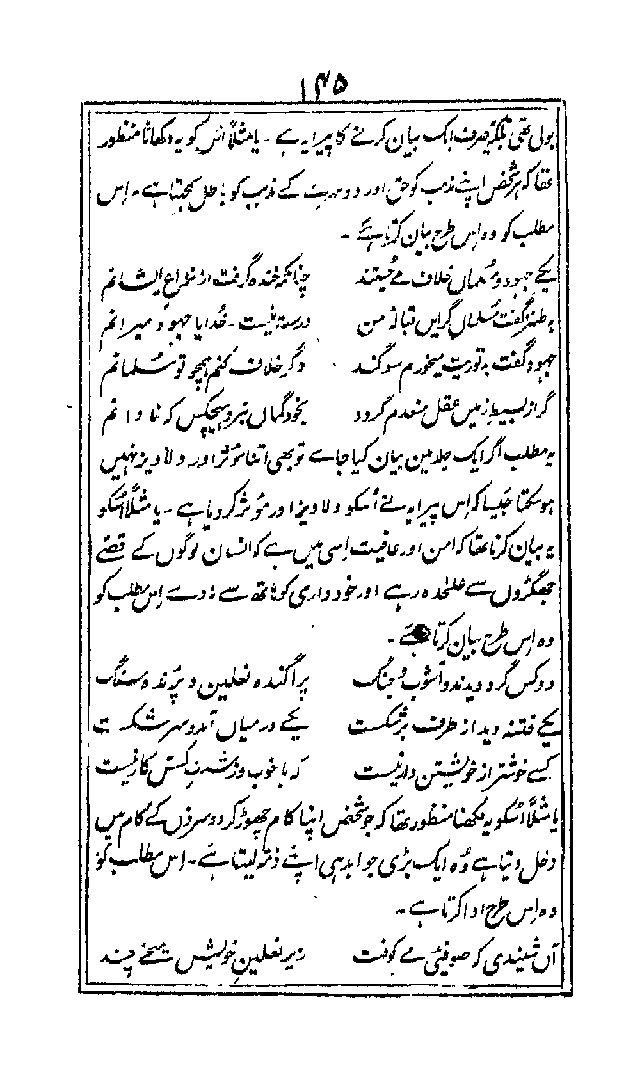 ۱۴۵
بولی تھی بلکہ صرف ایک بیان کرنے کا پیرایہ ہے ۔ یا مثلاً اُس کو یہ دکھانا منظور
تھا کہ ہر شخص اپنے مذہب کو حق اور دوسرے کے مذہب کو باطل سمجھتا ہے ۔ اِس
مطلب کو وہ اِس طرح بیان کرتا ہے ۔
یکے جہود و مسلماں خلاف مے جستند    چنانکہ خندہ گرفت از نزاع ایشانم
بہ طنز گفت مسلماں گر ایں قبالۂ من    درست نیست ۔ خدایا جہود میرانم
جہود گفت بہ توریت میخورم سوگند    وگر خلاف کنم ہمچو تو مسلمانم
گر از بسیط زمیں عقل منعدم گردد    بخود گماں نبرد ہیچکس کہ نادانم
یہ مطلب اگر ایک جلد میں بیان کیا جاے تو بھی اتنا مؤثر اور دلاویز نہیں
ہو سکتا جیسا کہ اِس پیرایہ نے اُسکو دلاویز اور مؤثر کر دیا ہے ۔ یا مثلاً اُسکو
یہ بیان کرنا تھا کہ امن اور عافیت اِسی میں ہے کہ انسان لوگوں کے قصے
جھگڑوں سے علٰحدہ رہے اور خودداری کو ہاتھ سے نہ دے اِس مطلب کو
وہ اِس طرح بیان کرتا ہے ۔
دو کس گرد دیدند و آشوب و جنگ    پراگندہ نعلین و پرندہ سنگ
یکے فتنہ دید از طرف بر شکست    یکے درمیاں آمد و سر شکست
کسے خوشتر از خویشتن دار نیست    کہ با خوب و زشت کسش کار نیست
یا مثلاً اُسکو یہ لکھنا منظور تھا کہ جو شخص اپنا کام چھوڑ کر دوسروں کے کام میں
دخل دیتا ہے وُہ ایک بڑی جوابدہی اپنے ذمہ لیتا ہے ۔ اس مطلب کو
وہ اِس طرح ادا کرتا ہے ۔
آں شنیدی کہ صوفیئے مے کوفت    زیر نعلین خویش میخے چند